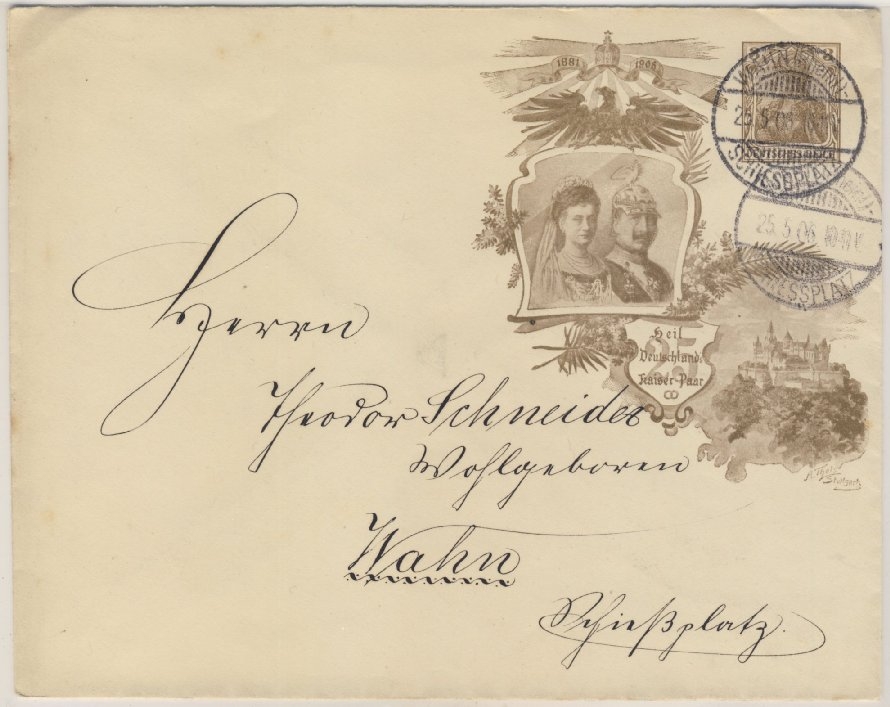 1881 1906
WAHN (Rheinl.)-
25.5.06
SCHIESSPLATZ
DEUTSCHES REICH
25.5.06 10-11V.
SCHIESSPLATZ
25
Heil
Deutschlands
Kaiser-Paar
Stuttgart
Herrn
Theodor Schneider
Wohlgeboren
Wahn
Schießplatz.